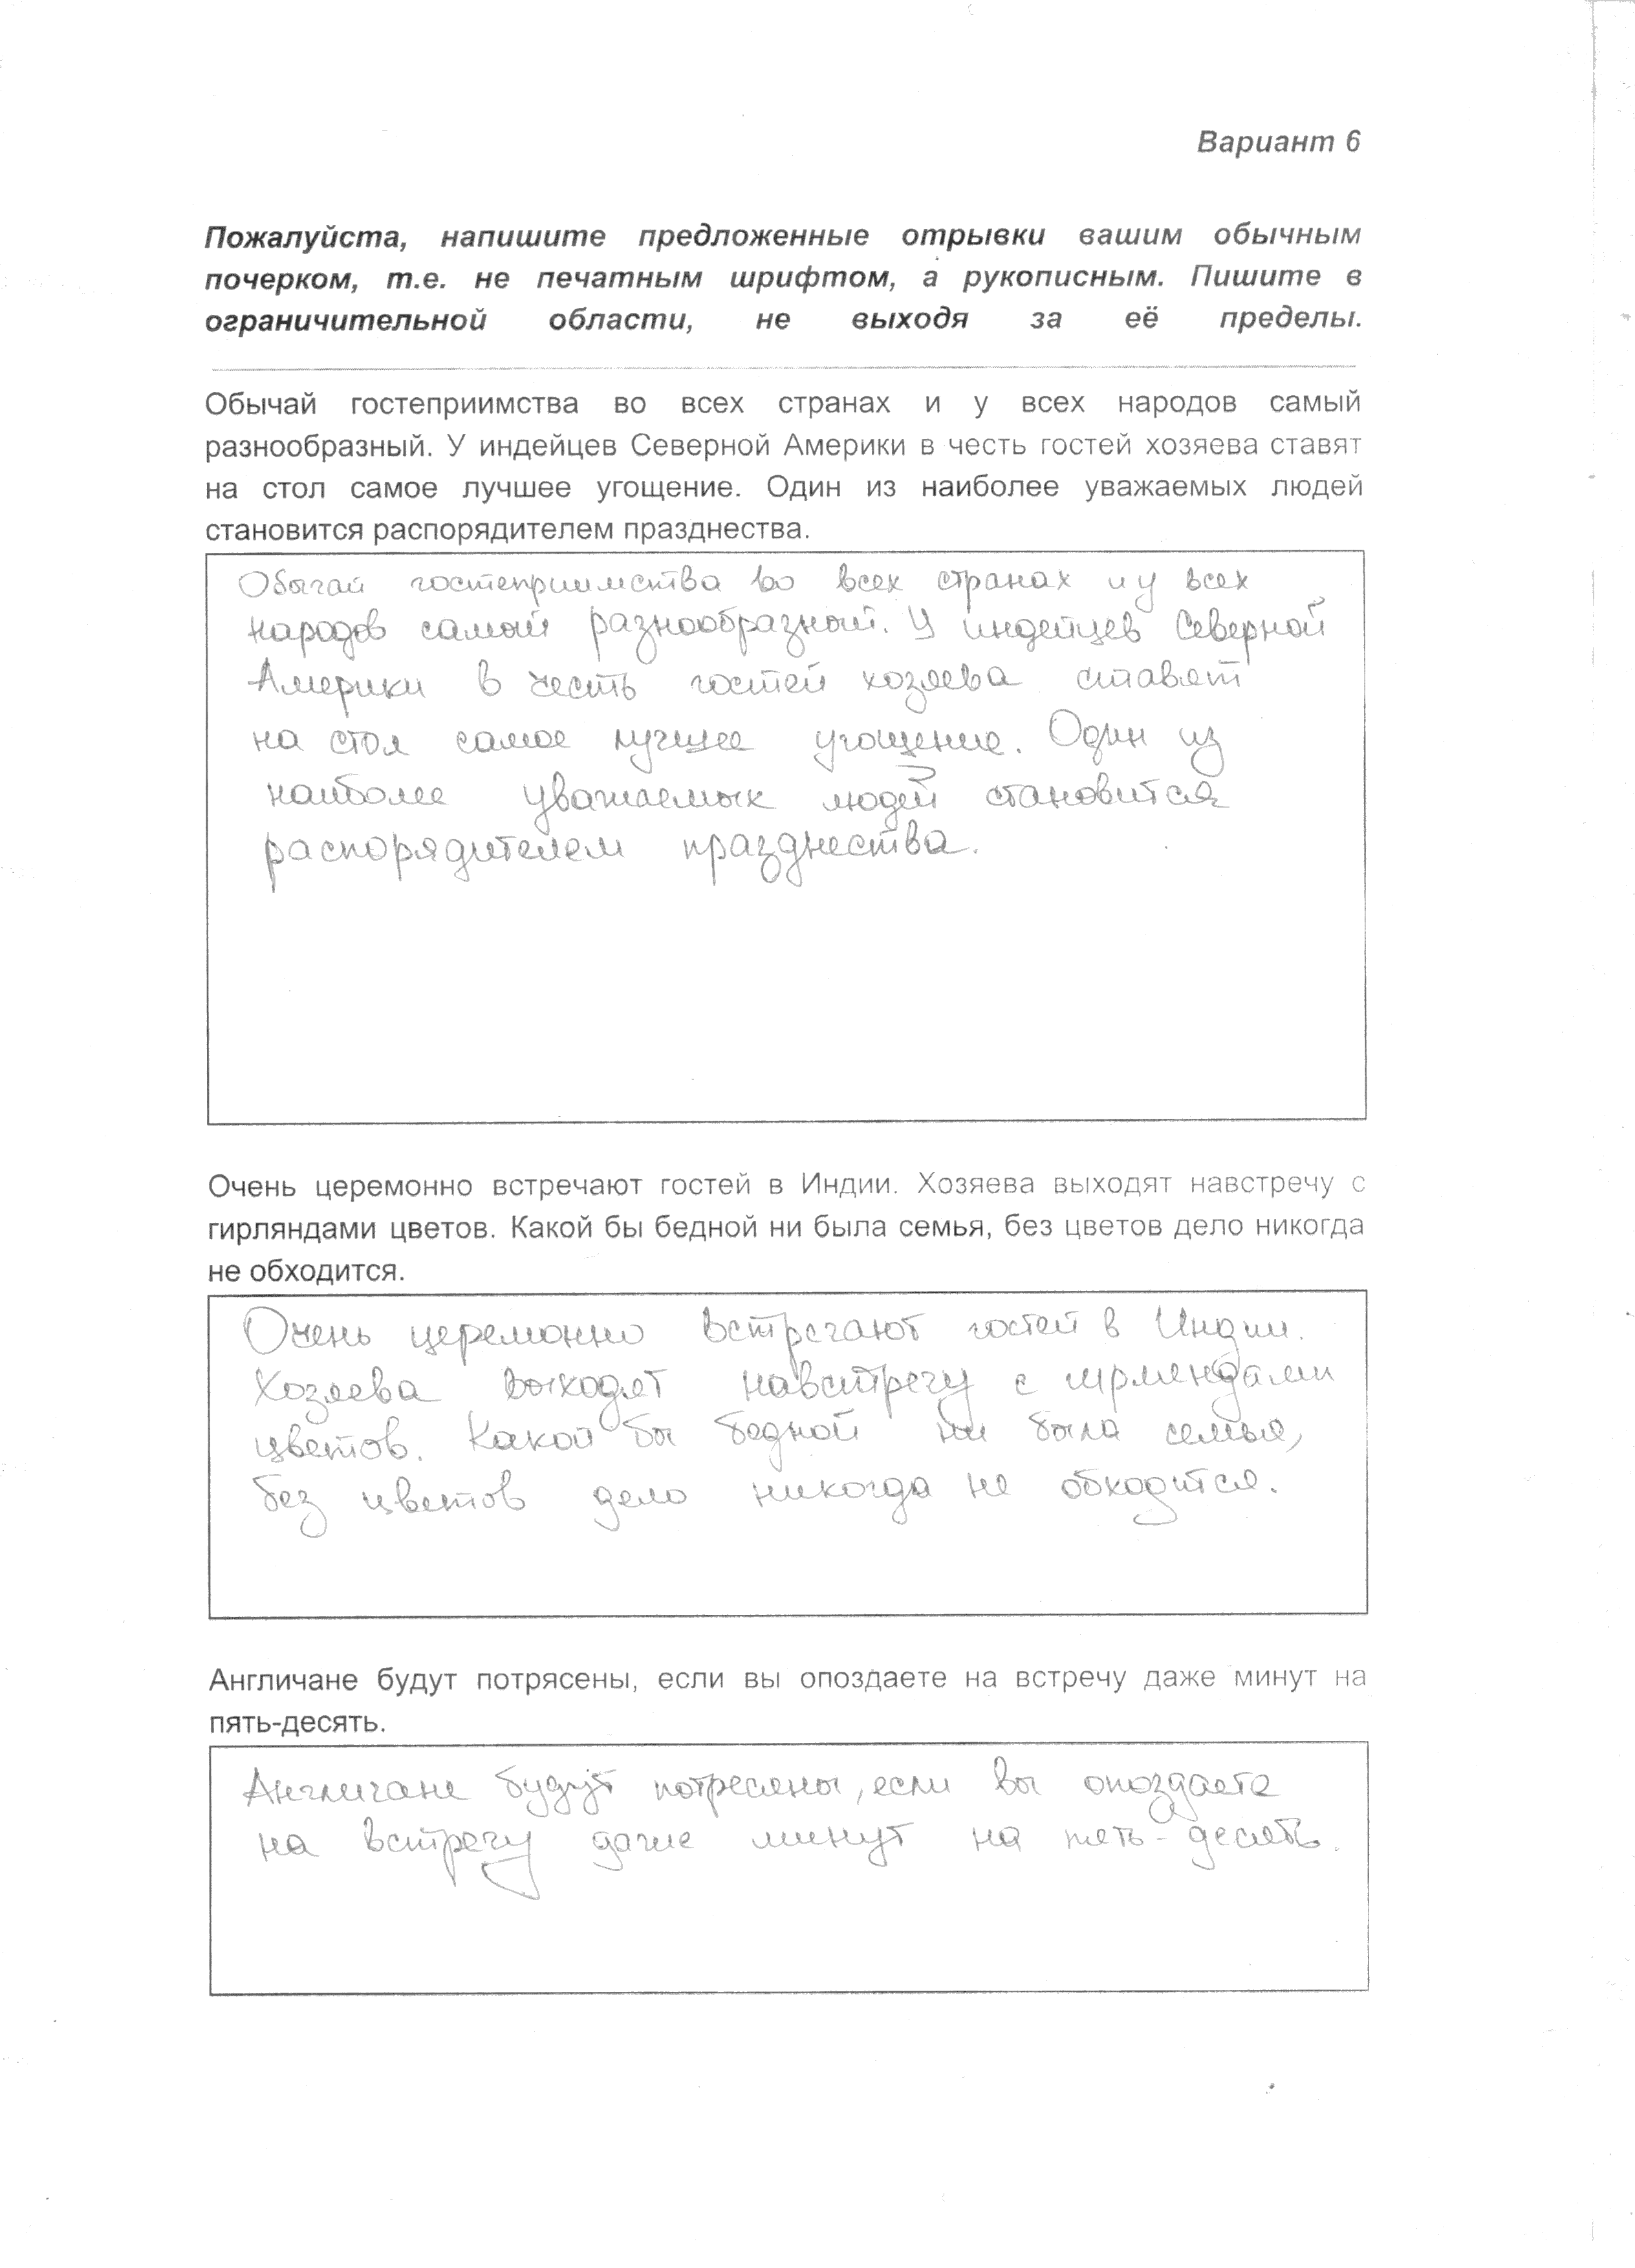 Вариант 6
Пожалуйста, напишите предложенные отрывки вашим обычным
почерком, т.е. не печатным шрифтом, а рукописным. Пишите в
ограничительной области, не выходя за её пределы.
Обычай гостеприимства во всех странах и у всех народов самый
разнообразный. У индейцев Северной Америки в честь гостей хозяева ставят
на стол самое лучшее угощение. Один из наиболее уважаемых людей
становится распорядителем празднества.
Обычай гостеприимства во всех странах и у всех
народов самый разнообразный. У индейцев Северной
Америки в честь гостей хозяева ставят
на стол самое лучшее угощение. Один из
наиболее уважаемых людей становится
распорядителем празднества.
Очень церемонно встречают гостей в Индии. Хозяева выходят навстречу с
гирляндами цветов. Какой бы бедной ни была семья, без цветов дело никогда
не обходится.
Очень церемонно встречают гостей в Индии.
Хозяева выходят навстречу с гирляндами
цветов. Какой бы бедной ни была семья,
без цветов дело никогда не обходится.
Англичане будут потрясены, если вы опоздаете на встречу даже минут на
пять-десять.
Англичане будут потрясены, если вы опоздаете
на встречу даже минут на пять-десять.